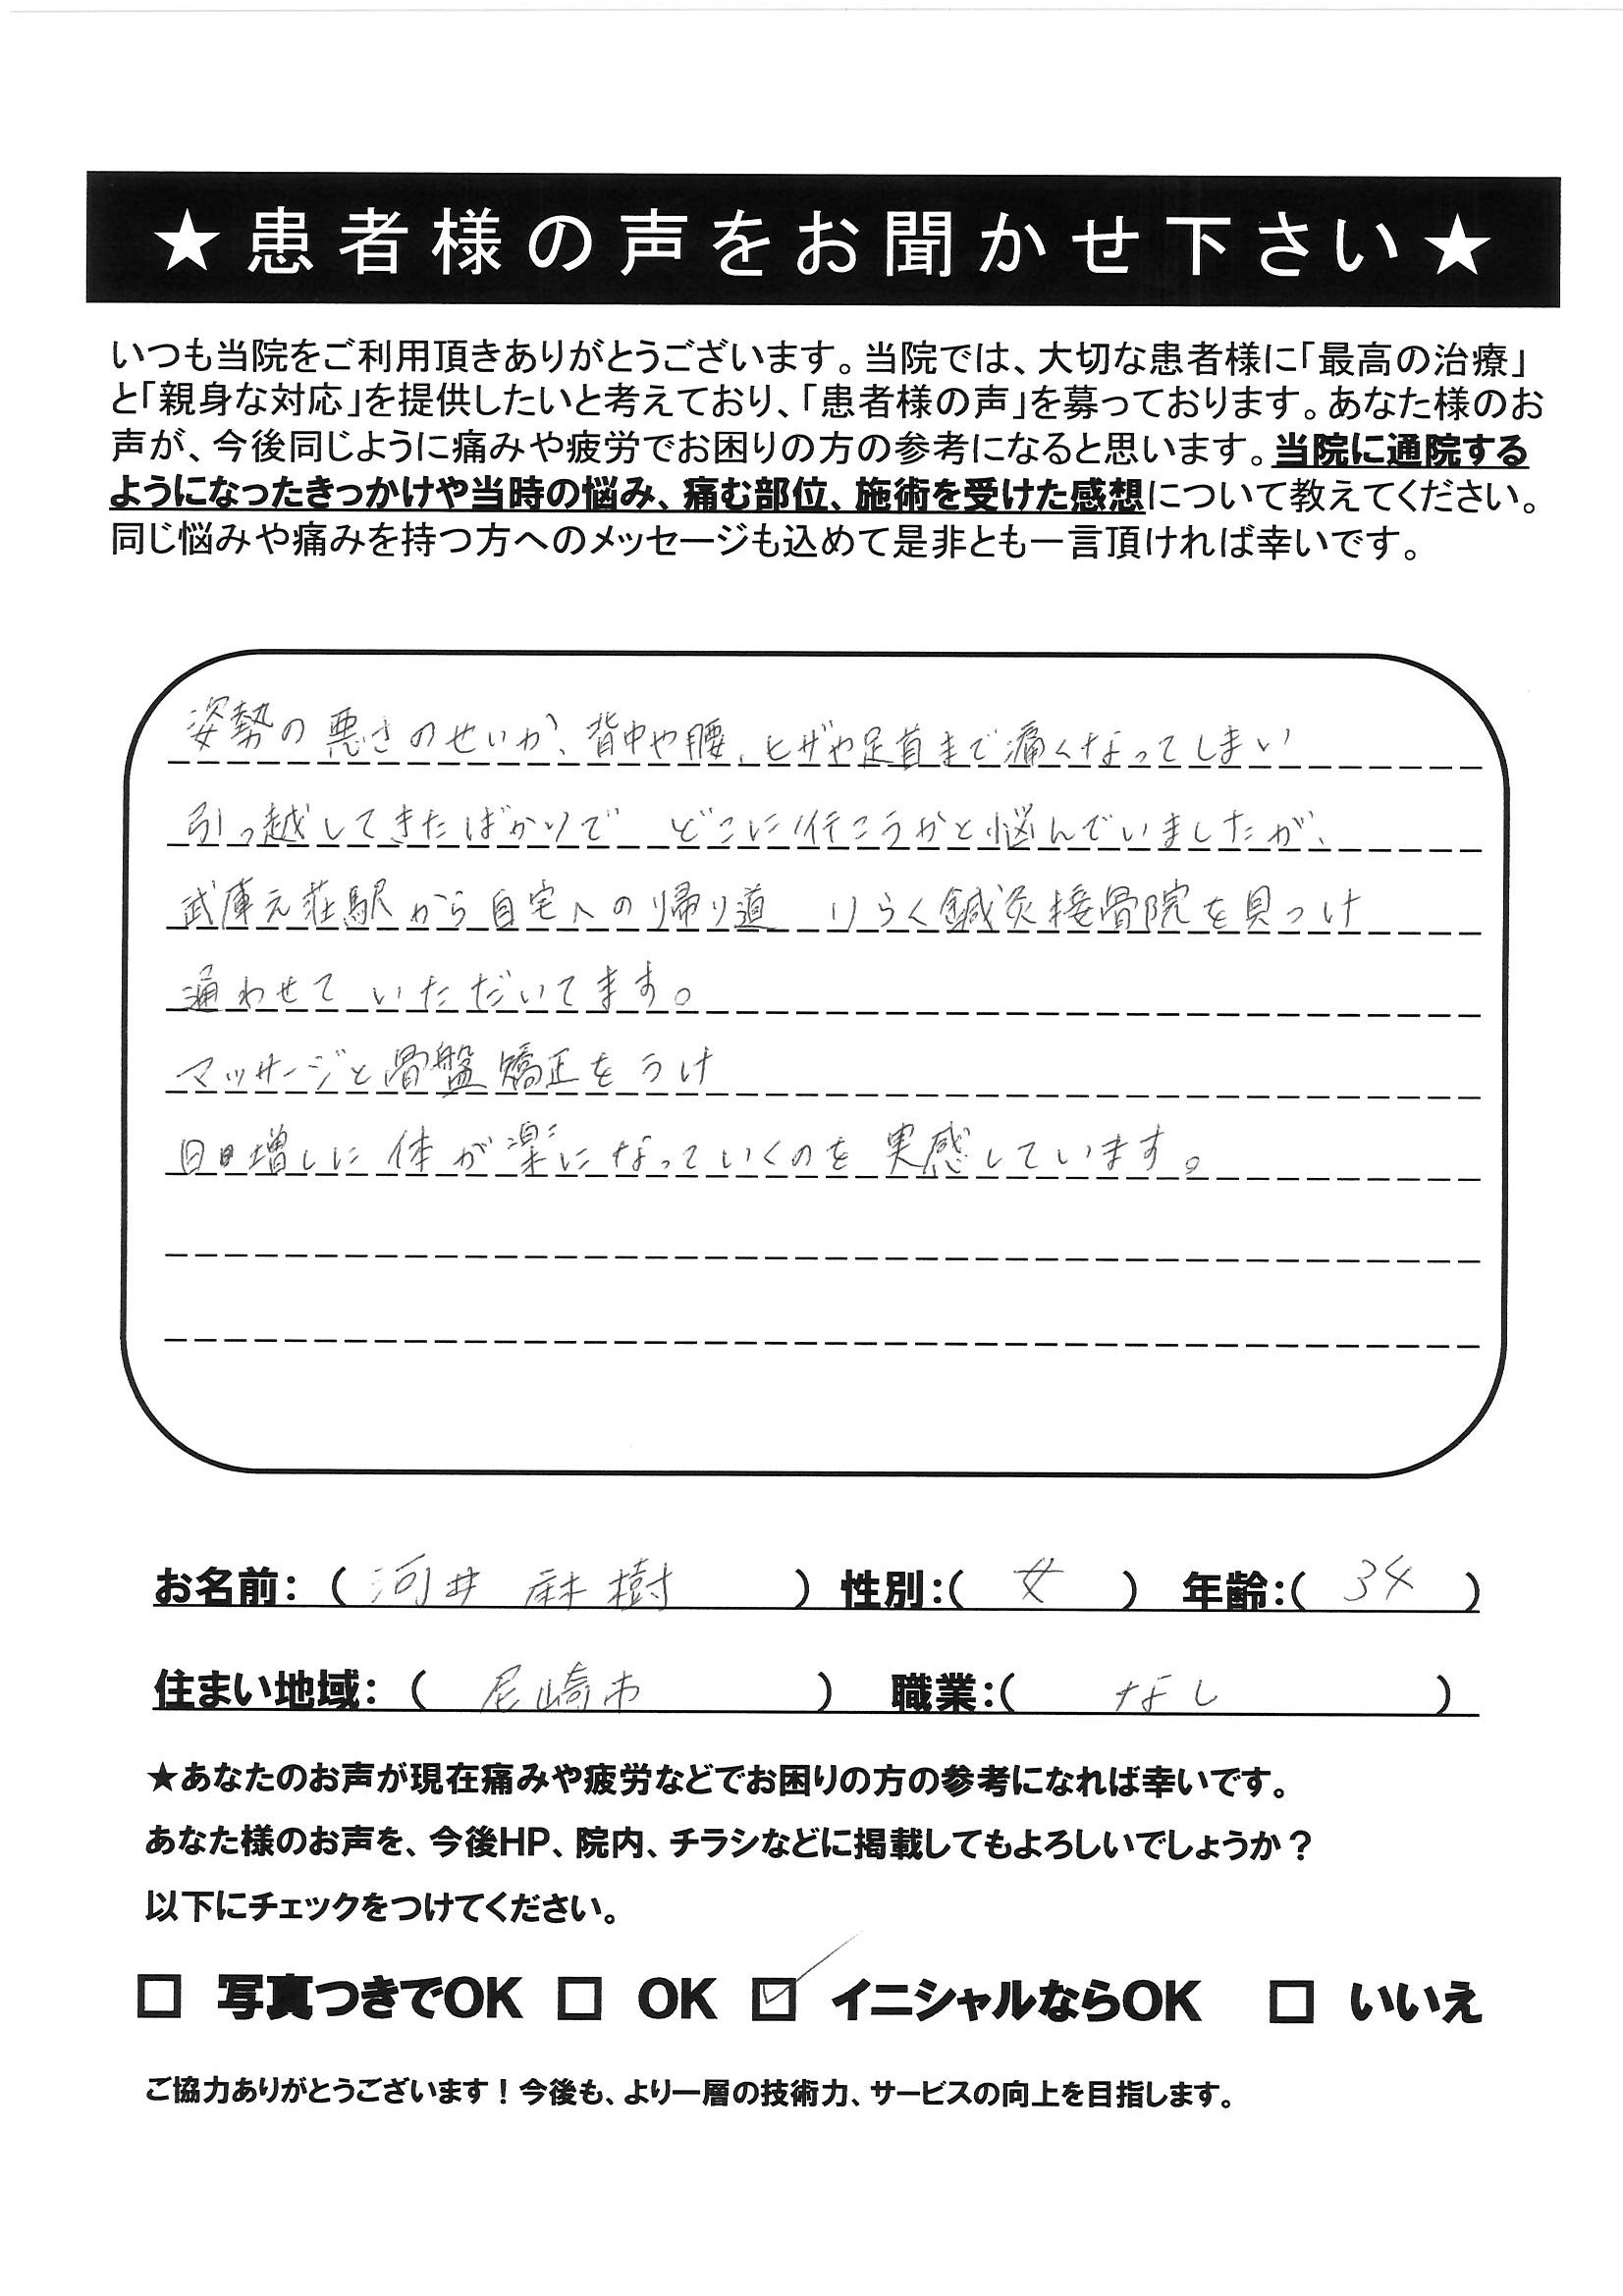 ★患者様の声をお聞かせ下さい★
いつも当院をご利用頂きありがとうございます。当院では、大切な患者様に「最高の治療」
と「親身な対応」を提供したいと考えており、「患者様の声」を募っております。あなた様のお
声が、今後同じように痛みや疲労でお困りの方の参考になると思います。当院に通院する
ようになったきっかけや当時の悩み、痛む部位、施術を受けた感想について教えてください。
同じ悩みや痛みを持つ方へのメッセージも込めて是非とも一言頂ければ幸いです。
姿勢の悪さのせいか、背中や腰、ヒザや足首まで痛くなってしまい
引っ越してきたばかりで どこに行こうかと悩んでいましたが、
武庫元荘駅から自宅への帰り道 りらく鍼灸接骨院を見つけ
通わせていただいてます。
マッサージと骨盤矯正をうけ
日日増しに体が楽になっていくのを実感しています。
お名前：（河井 麻樹） 性別：（女） 年齢：（34）
住まい地域：（尼崎市） 職業：（なし）
★あなたのお声が現在痛みや疲労などでお困りの方の参考になれば幸いです。
あなた様のお声を、今後HP、院内、チラシなどに掲載してもよろしいでしょうか？
以下にチェックをつけてください。
□ 写真つきでOK □ OK ☑ イニシャルならOK □ いいえ
ご協力ありがとうございます！今後も、より一層の技術力、サービスの向上を目指します。